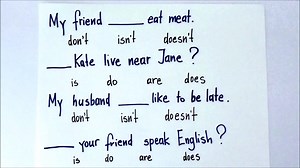 My friend ____ eat meat.
don't isn't doesn't
___ Kate live near Jane ?
is do are does
My husband ____ like to be late.
don't isn't doesn't
___ your friend speak English ?
is do are does